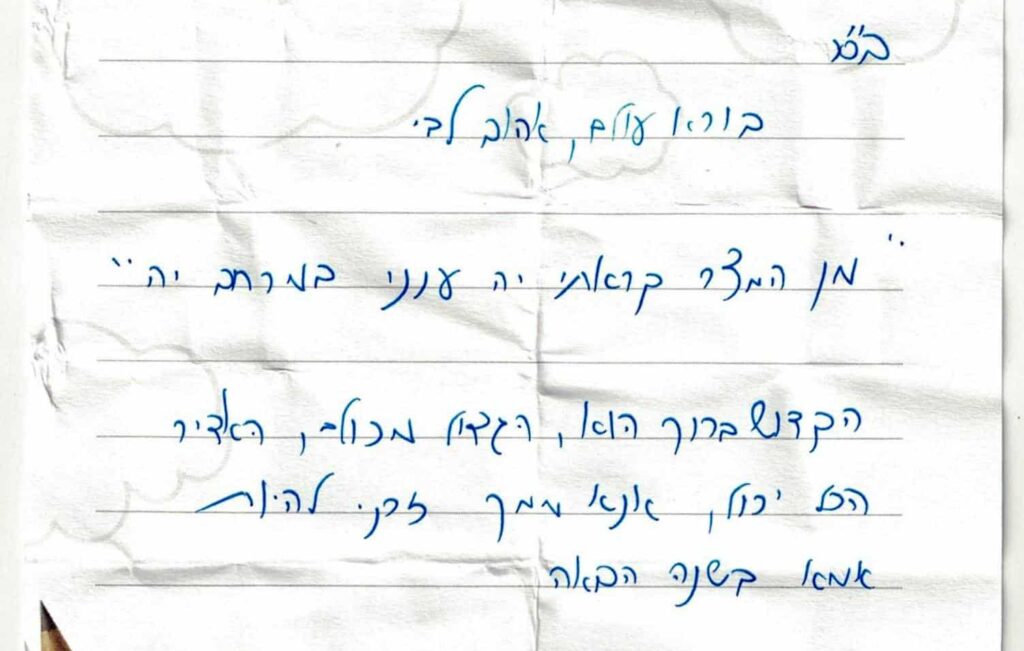 בס"ד
בורא עולם, אהוב לבי
"מן המצר קראתי יה ענני במרחב יה"
הקדוש ברוך הוא, הגדול מכולם, האדיר
הכל יכול, אנא ממך זכני להיות
אמא בשנה הבאה